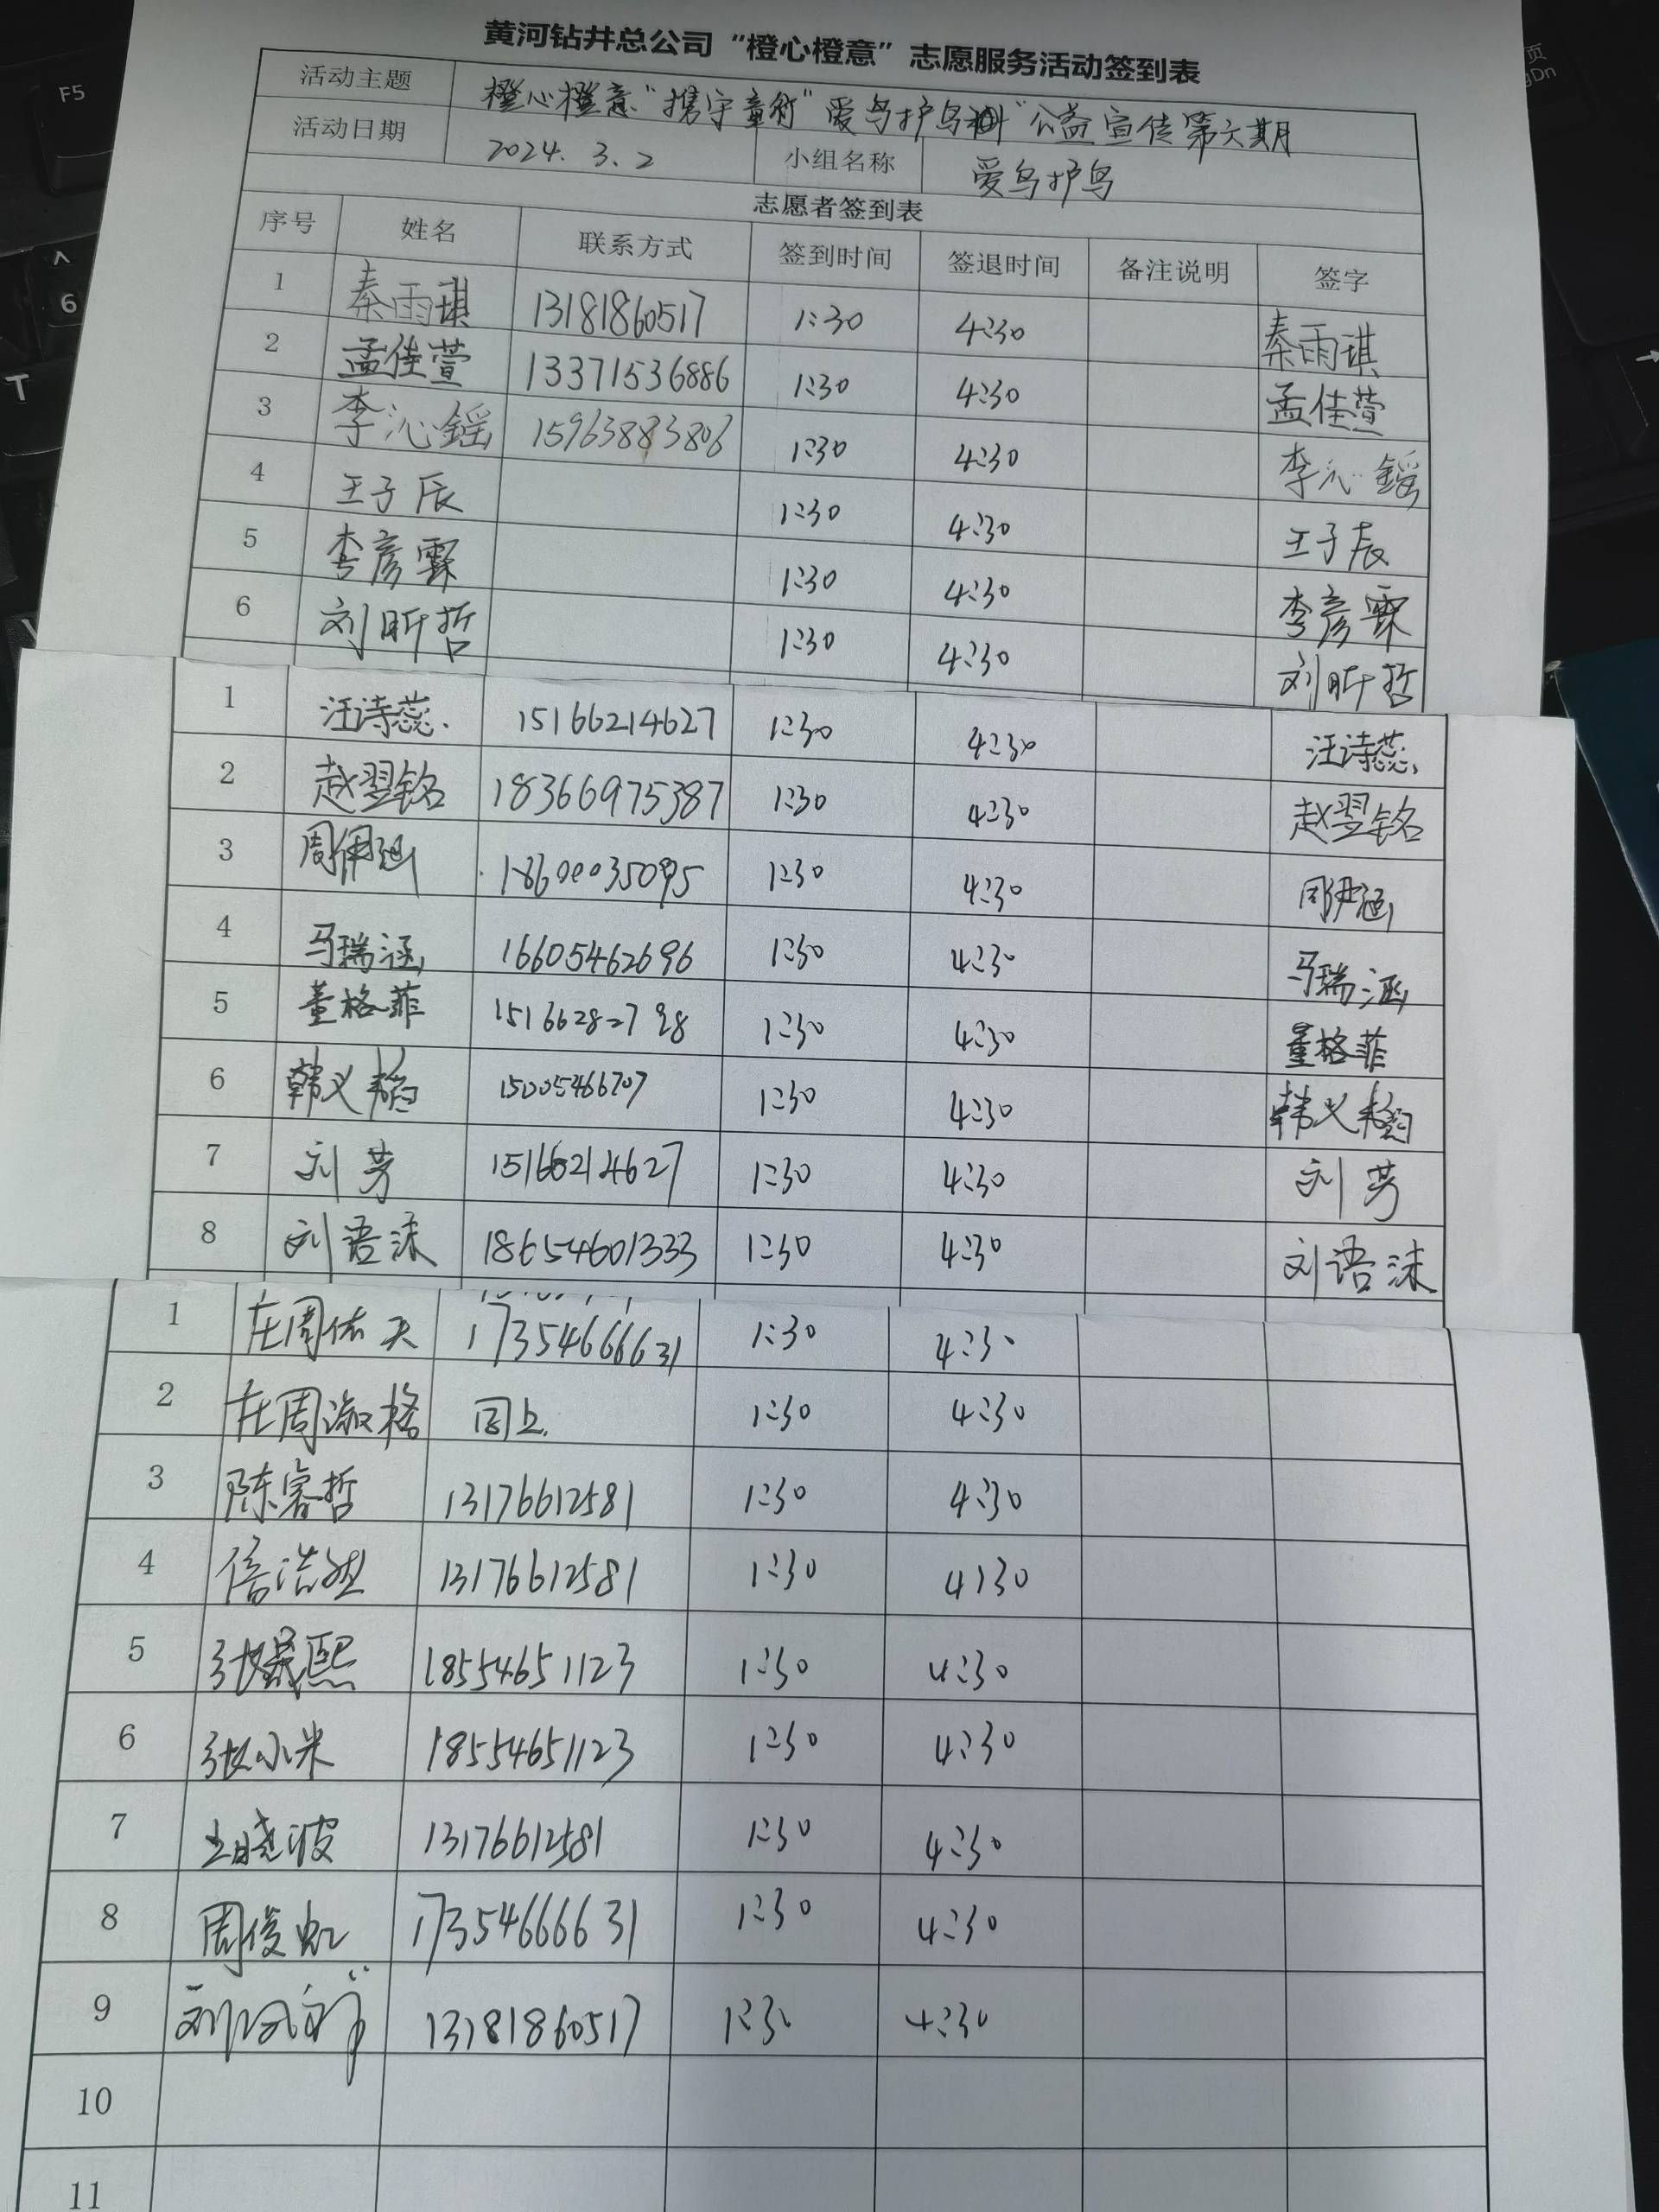 黄河钻井总公司“橙心橙意”志愿服务活动签到表
活动主题 橙心橙意“携宇童行”爱鸟护鸟 公益宣传第六期
活动日期 2024.3.2 小组名称 爱鸟护鸟
志愿者签到表
序号 姓名 联系方式 签到时间 签退时间 备注说明 签字
1 秦雨琪 13181860517 1:30 4:30 秦雨琪
2 孟佳萱 13371536886 1:30 4:30 孟佳萱
3 李沁鎐 15963883806 1:30 4:30 李沁鎐
4 王子辰 1:30 4:30 王子辰
5 李彦霖 1:30 4:30 李彦霖
6 刘昕哲 1:30 4:30 刘昕哲
1 汪诗蕊. 15166214627 1:30 4:30 汪诗蕊.
2 赵翌铭 18366975387 1:30 4:30 赵翌铭
3 周伊涵 18600035095 1:30 4:30 周伊涵
4 马瑞涵 16605462696 1:30 4:30 马瑞涵
5 董格菲 15166282798 1:30 4:30 董格菲
6 韩义 15005466707 1:30 4:30 韩义
7 刘芳 15166214627 1:30 4:30 刘芳
8 刘语沫 18654601333 1:30 4:30 刘语沫
1 庄周佑天 17354666631 1:30 4:30
2 庄周淑格 同上. 1:30 4:30
3 陈睿哲 13176612581 1:30 4:30
4 信浩 13176612581 1:30 4:30
5 张晟熙 18554651123 1:30 4:30
6 张小米 18554651123 1:30 4:30
7 王晓波 13176612581 1:30 4:30
8 周俊虹 17354666631 1:30 4:30
9 刘 13181860517 1:30 4:30
10
11
F5
6
T